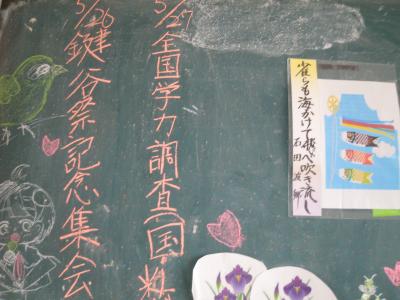 5/26 鍵谷祭記念集会
5/27 全国学力調査(国・数
雀らも海かけて飛べ吹き流し
石田波郷